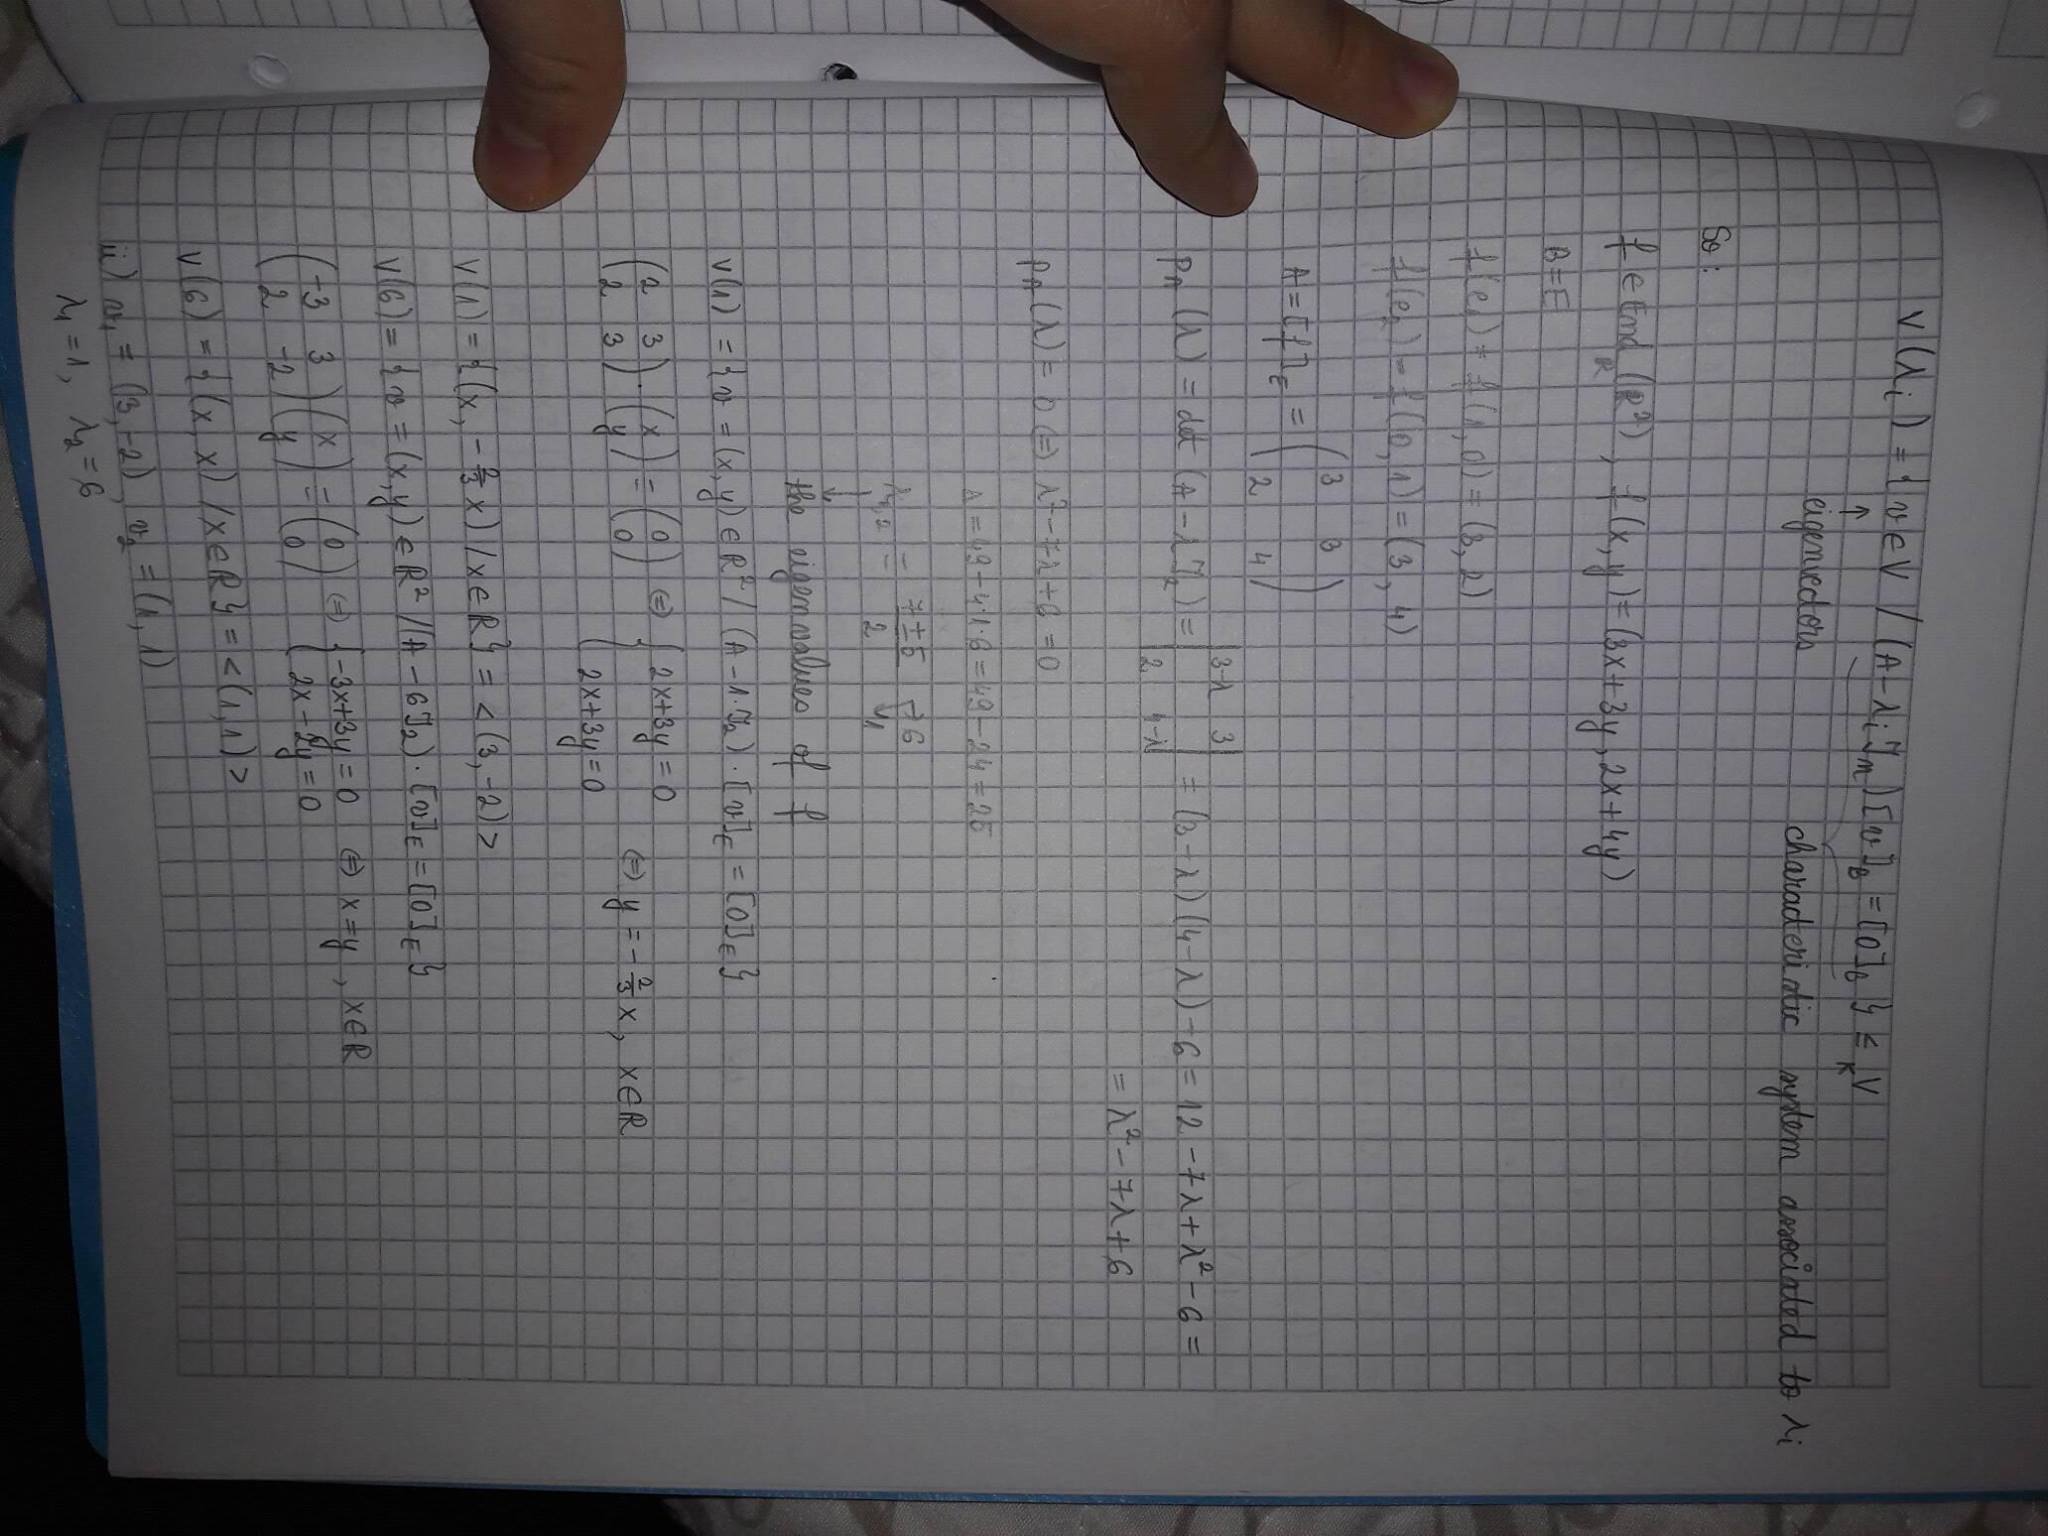 V(λi) = { v ∈ V / (A - λi In) [v]B = [0]B } ≤K V
↑
eigenvectors
characteristic system associated to λi
So:
f ∈ EndR (R²), f(x,y) = (3x+3y, 2x+4y)
B = E
f(e1) = f(1,0) = (3,2)
f(e2) = f(0,1) = (3,4)
A = [f]E = ( 3 3
2 4 )
PA(λ) = det (A - λI2) = | 3-λ 3 | = (3-λ)(4-λ) - 6 = 12 - 7λ + λ² - 6 =
| 2 4-λ |
= λ² - 7λ + 6
PA(λ) = 0 ⇔ λ² - 7λ + 6 = 0
Δ = 49 - 4·1·6 = 49 - 24 = 25
λ1,2 = (7 ± 5)/2 → 6
→ 1
↓
the eigenvalues of f
V(1) = { v = (x,y) ∈ R² / (A - 1·I2) · [v]E = [0]E }
( 2 3 ) · ( x ) = ( 0 ) ⇔ { 2x+3y = 0
( 2 3 ) ( y ) ( 0 ) { 2x+3y = 0 ⇔ y = -2/3 x, x ∈ R
V(1) = { (x, -2/3 x) / x ∈ R } = < (3,-2) >
V(6) = { v = (x,y) ∈ R² / (A - 6I2) · [v]E = [0]E }
( -3 3 ) ( x ) = ( 0 ) ⇔ { -3x+3y = 0 ⇔ x = y, x ∈ R
( 2 -2 ) ( y ) ( 0 ) { 2x-2y = 0
V(6) = { (x,x) / x ∈ R } = < (1,1) >
ii) v1 = (3,-2), v2 = (1,1)
λ1 = 1, λ2 = 6